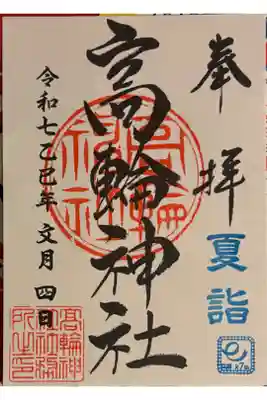 奉拝
夏詣
高輪神社
令和七乙巳年 文月 四日
高輪神社
髙輪神社社務所之印